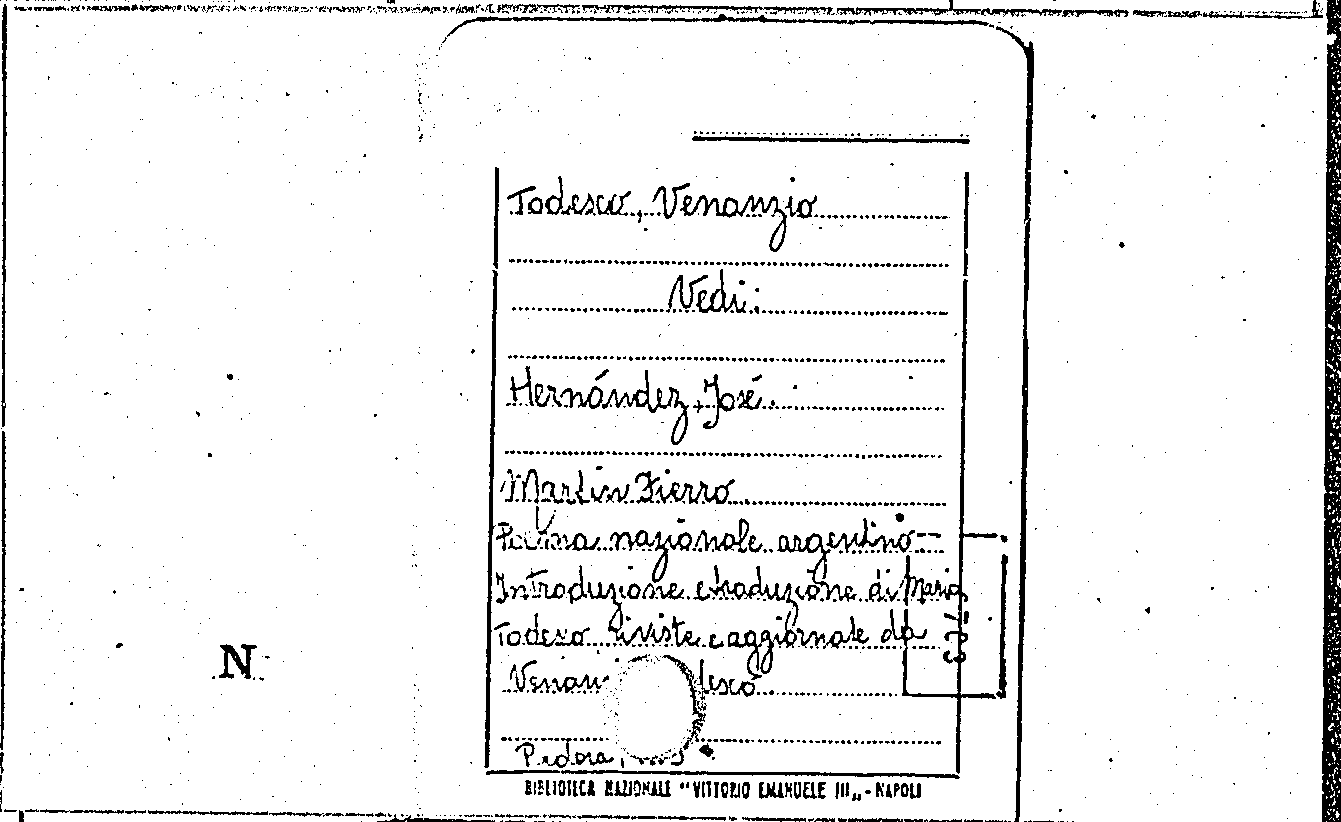 Todesco, Venanzio
Vedi:
Hernández, José.
Martín Fierro.
Poema nazionale argentino.
Introduzione e traduzione di Mario
Todesco riviste e aggiornate da
N
BIBLIOTECA NAZIONALE "VITTORIO EMANUELE III„ - NAPOLI